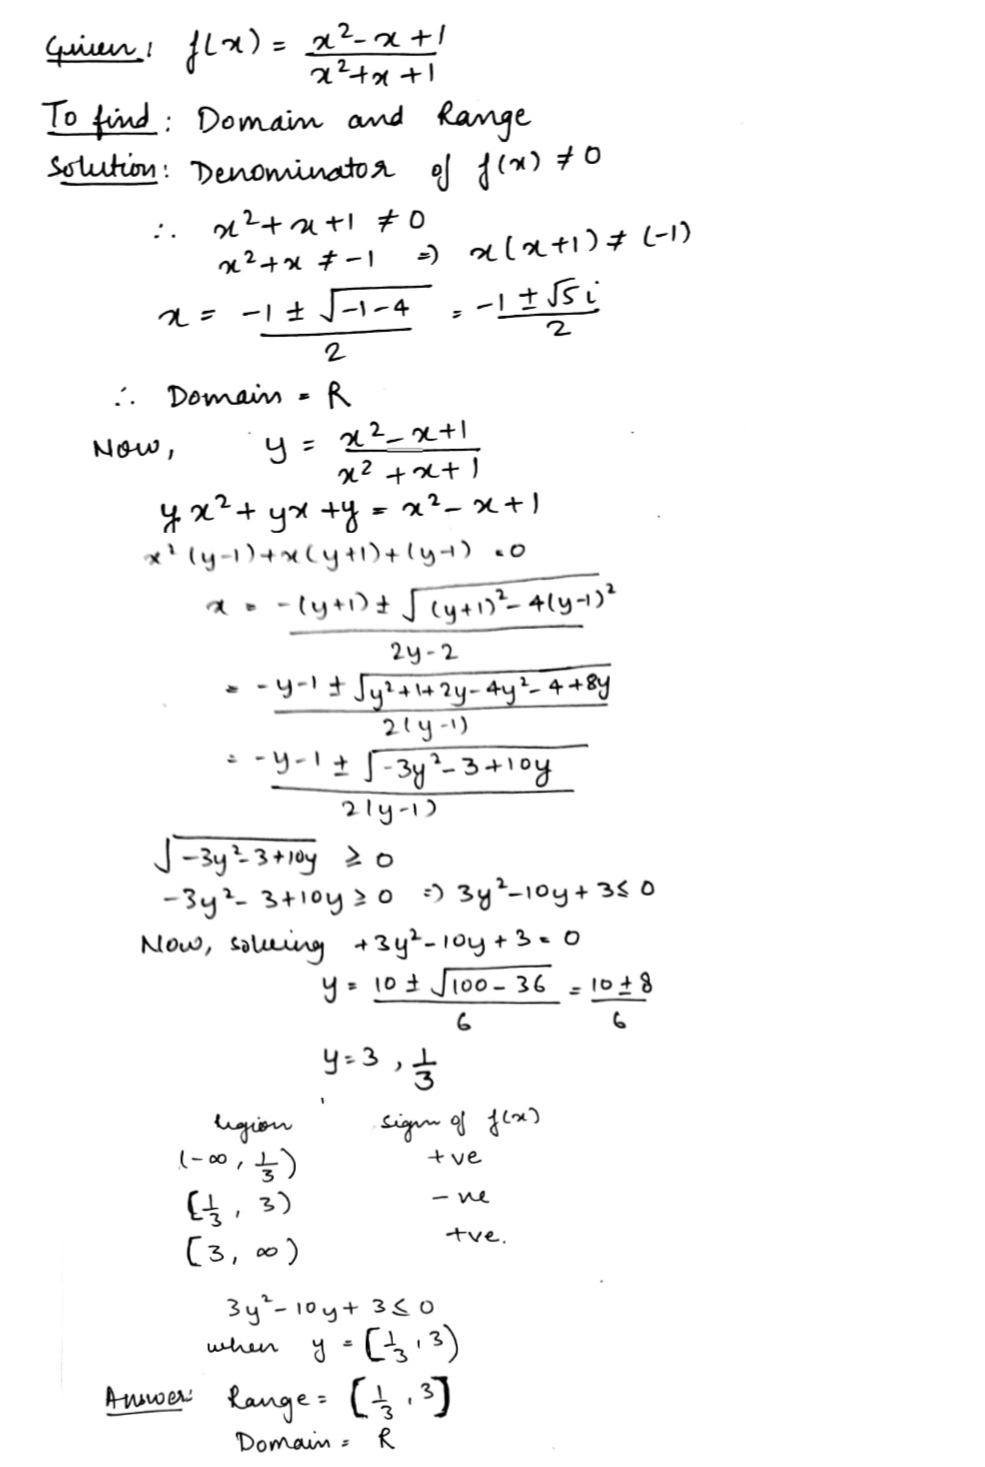 Given: f(x) = (x² - x + 1)/(x² + x + 1)
To find: Domain and Range
Solution: Denominator of f(x) ≠ 0
∴ x² + x + 1 ≠ 0
x² + x ≠ -1 ⇒ x(x+1) ≠ (-1)
x = (-1 ± √(-1-4))/2 = (-1 ± √5 i)/2
∴ Domain = R
Now, y = (x² - x + 1)/(x² + x + 1)
yx² + yx + y = x² - x + 1
x²(y-1) + x(y+1) + (y-1) = 0
x = (-(y+1) ± √((y+1)² - 4(y-1)²))/(2y-2)
= (-y-1 ± √(y²+1+2y-4y²-4+8y))/(2(y-1))
= (-y-1 ± √(-3y²-3+10y))/(2(y-1))
√(-3y²-3+10y) ≥ 0
-3y² - 3 + 10y ≥ 0 ⇒ 3y² - 10y + 3 ≤ 0
Now, solving +3y² - 10y + 3 = 0
y = (10 ± √(100-36))/6 = (10 ± 8)/6
y = 3, 1/3
region sign of f(x)
(-∞, 1/3) +ve
[1/3, 3) -ve
[3, ∞) +ve.
3y² - 10y + 3 ≤ 0
when y = [1/3, 3)
Answer: Range = [1/3, 3]
Domain = R